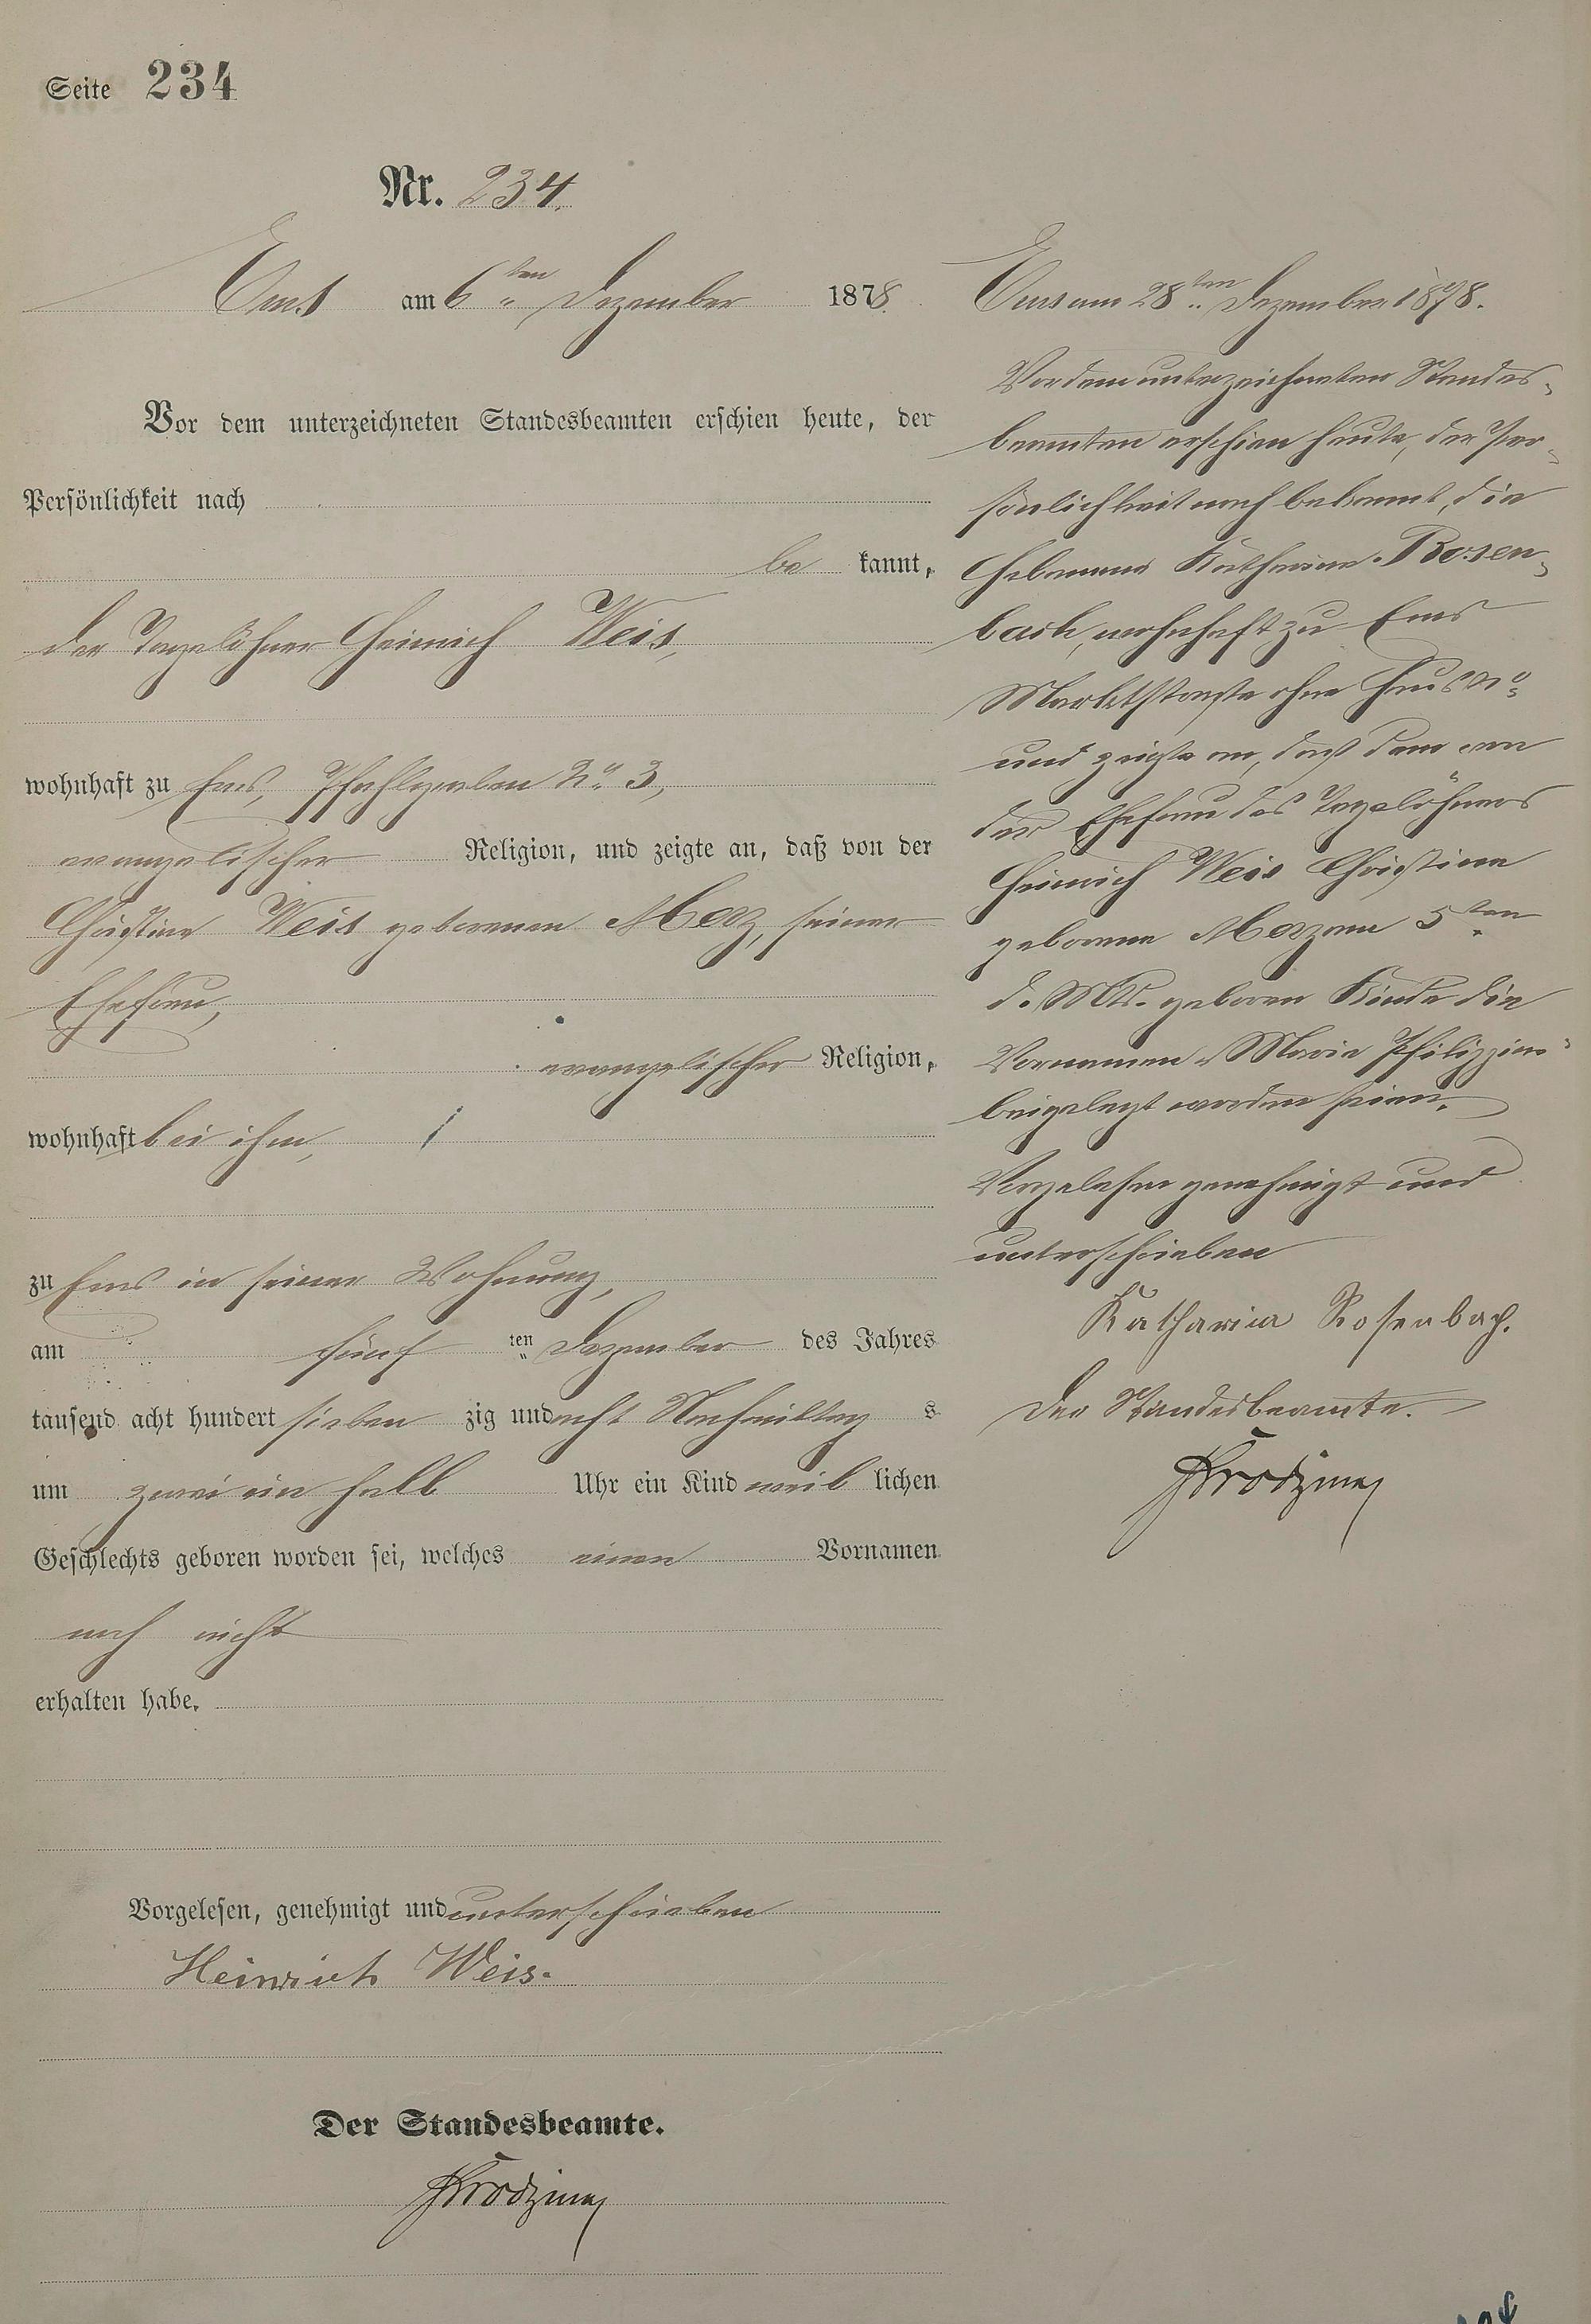 Seite 234
Nr. 234.
Ems am 6ten Dezember 1878.
Vor dem unterzeichneten Standesbeamten erschien heute, der
Persönlichkeit nach
be kannt,
der Tagelöhner Heinrich Weis,
wohnhaft zu Ems, Pfahlgraben No 3,
evangelischer Religion, und zeigte an, daß von der
Christine Weis geborenen Merz, seiner
Ehefrau,
evangelischer Religion,
wohnhaft bei ihm,
zu Ems in seiner Wohnung,
am fünf ten Dezember des Jahres
tausend acht hundert sieben zig und acht Nachmittag s
um zwei ein halb Uhr ein Kind weib lichen
Geschlechts geboren worden sei, welches einen Vornamen
noch nicht
erhalten habe.
Vorgelesen, genehmigt und unterschrieben
Heinrich Weis.
Der Standesbeamte.
Ems am 28ten Dezember 1878.
Vor dem unterzeichneten Standes-
beamten erschien heute, der Per-
sönlichkeit nach bekannt, die
Hebamme Katharina Rosen-
bach, wohnhaft zu Ems
Marktstraße ohne Haus No
und zeigte an, daß dem von
der Ehefrau des Tagelöhners
Heinrich Weis Christine
geborene Merz am 5ten
d. Mts. geboren Kinde die
Vornamen "Maria Philippine"
beigelegt worden seien.
Vorgelesen genehmigt und
unterschrieben
Katharina Rosenbach.
Der Standesbeamte.